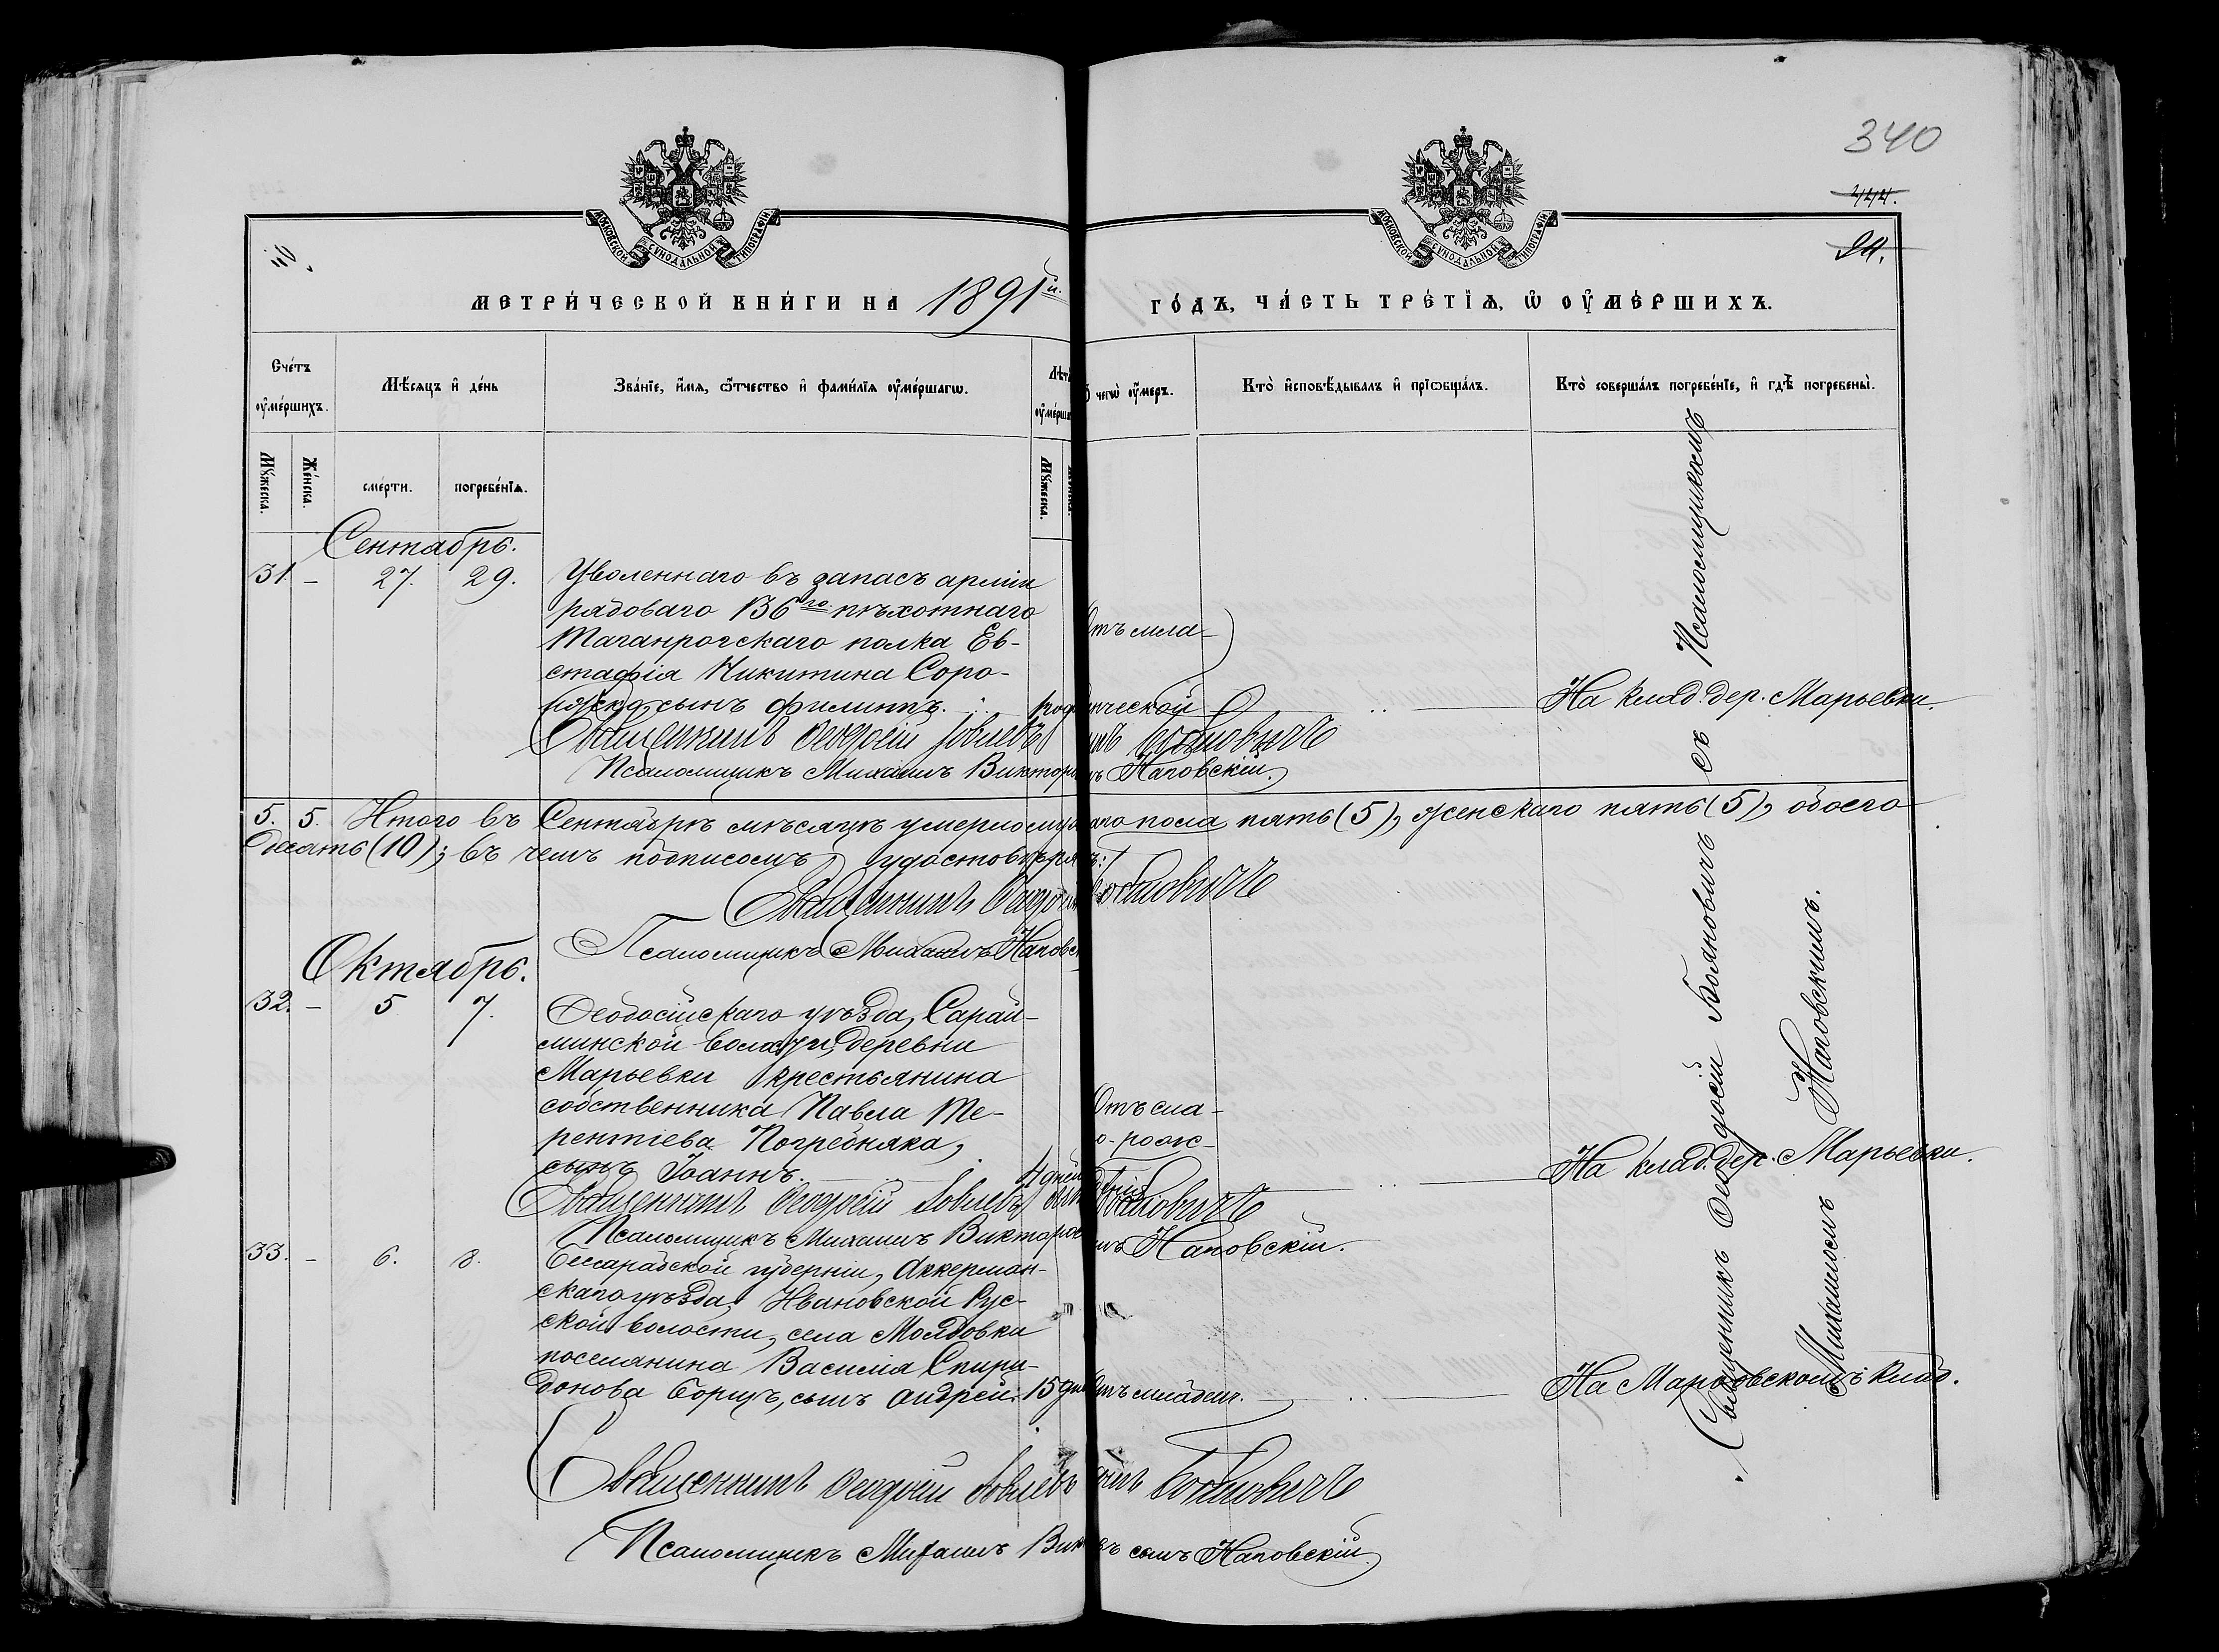 340
444.
МОСКОВСКОЙ СѴНОДАЛЬНОЙ ТИПОГРАФІИ
МОСКОВСКОЙ СѴНОДАЛЬНОЙ ТИПОГРАФІИ
МЕТРИ́ЧЕСКОЙ КНИ́ГИ НА 1891й. ГО́ДЪ, ЧА́СТЬ ТРЕ́ТЇѦ, Ѡ҆ ОУ҆МЕ́РШИХЪ.
Сче́тъ оу҆ме́ршихъ.
Мѣ́сѧцъ и҆ де́нь
Зва́нїе, и҆́мѧ, ѻ҆́тчество и҆ фами́лїѧ оу҆ме́ршагѡ.
Лѣт
оу҆ме́рша
чегѡ̀ оу҆́меръ.
Кто̀ и҆сповѣ́дывалъ и҆ прїѡбща́лъ.
Кто̀ соверша́лъ погребе́нїе, и҆ гдѣ̀ погребены̀.
Мꙋ́жеска.
Же́нска.
сме́рти.
погребе́нїѧ.
Мꙋ́жеска.
Сентябрь.
31. – 27. 29. Уволеннаго въ запасъ арміи
рядоваго 136го пѣхотнаго
Таганрогскаго полка Ев-
стафія Никитина Соро-
сынъ Филиппъ.
Отъ мла-
нческой
На клад. дер. Марьевки.
Священникъ Ѳеодосій Іовлевъ Бояновичъ
Псаломщикъ Михаилъ Виктор въ Наповскій.
5. 5. Итого въ Сентябрѣ мѣсяцѣ умерло муж аго пола пять (5), женскаго пять (5), обоего
десять (10); въ чемъ подписомъ удостовѣря ъ:
Священникъ Ѳеодосій Бояновичъ
Псаломщикъ Михаилъ Наповск
Октябрь.
32. – 5 7. Ѳеодосійскаго уѣзда, Сарай-
минской волости, деревни
Марьевки крестьянина
собственника Павла Те-
рентіева Погребняка,
сынъ Іоаннъ.
4 дней
Отъ сла-
о-рожс-
На клад. дер. Марьевки.
Священникъ Ѳеодосій Іовлевъ Бояновичъ
Псаломщикъ Михаилъ Викторов Наповскій.
33. – 6. 8. Бессарабской губерніи, Аккерман-
скаго уѣзда, Ивановской Рус-
ской волости, села Молдовки
поселянина Василія Спири-
донова Борщъ, сынъ Андрей. 15 дне
Отъ младен.
На Марьевскомъ клад.
Священникъ Ѳеодосій Іовлевъ сынъ Бояновичъ
Псаломщикъ Михаилъ Вик въ сынъ Наповскій
Священникъ Ѳеодосій Бояновичъ съ Псаломщикомъ
Михаиломъ Наповскимъ.